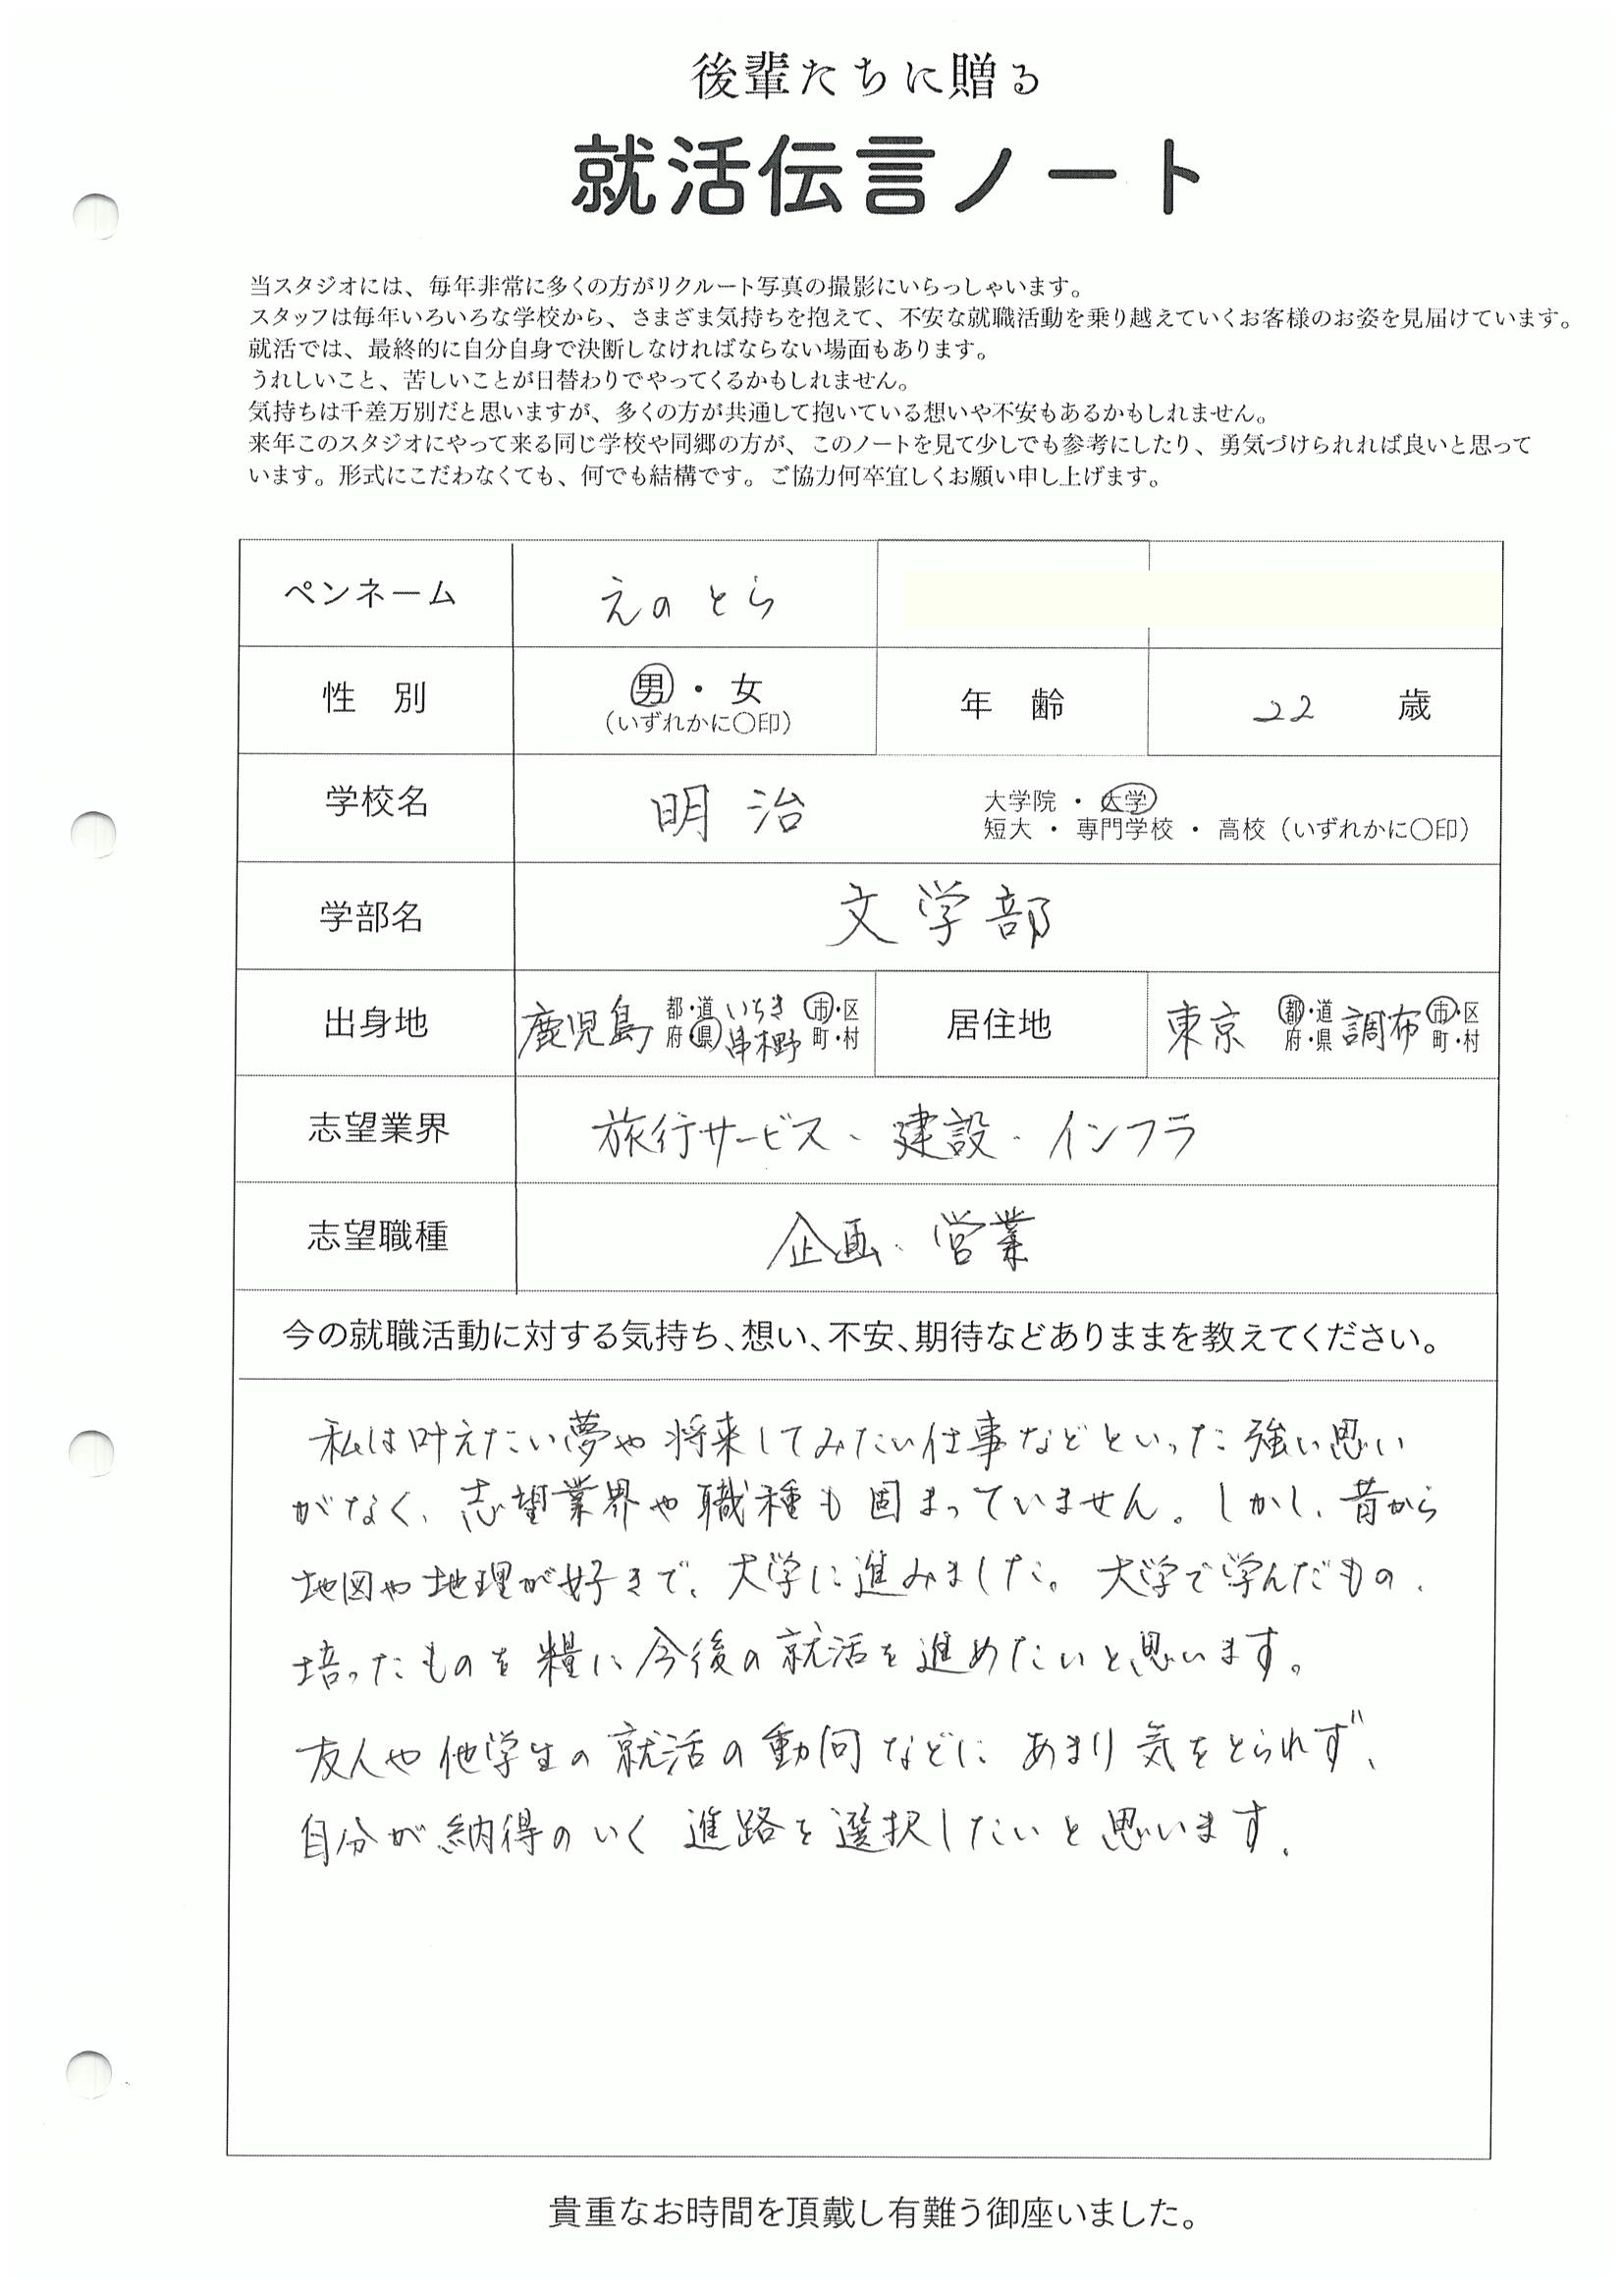 後輩たちに贈る
就活伝言ノート
当スタジオには、毎年非常に多くの方がリクルート写真の撮影にいらっしゃいます。
スタッフは毎年いろいろな学校から、さまざま気持ちを抱えて、不安な就職活動を乗り越えていくお客様のお姿を見届けています。
就活では、最終的に自分自身で決断しなければならない場面もあります。
うれしいこと、苦しいことが日替わりでやってくるかもしれません。
気持ちは千差万別だと思いますが、多くの方が共通して抱いている想いや不安もあるかもしれません。
来年このスタジオにやって来る同じ学校や同郷の方が、このノートを見て少しでも参考にしたり、勇気づけられれば良いと思って
います。形式にこだわなくても、何でも結構です。ご協力何卒宜しくお願い申し上げます。
ペンネーム えのとら
性 別 男・女 年 齢 22 歳
(いずれかに〇印)
学校名 明治 大学院・大学
短大・専門学校・高校(いずれかに〇印)
学部名 文学部
出身地 鹿児島 都・道 いちき 市・区 居住地 東京 都・道 調布 市・区
府・県 串木野 町・村 府・県 町・村
志望業界 旅行サービス、建設、インフラ
志望職種 企画、営業
今の就職活動に対する気持ち、想い、不安、期待などありままを教えてください。
私は叶えたい夢や将来してみたい仕事などといった強い思い
がなく、志望業界や職種も固まっていません。しかし、昔から
地図や地理が好きで、大学に進みました。大学で学んだもの、
培ったものを糧に今後の就活を進めたいと思います。
友人や他学生の就活の動向などにあまり気をとられず、
自分が納得のいく進路を選択したいと思います。
貴重なお時間を頂戴し有難う御座いました。